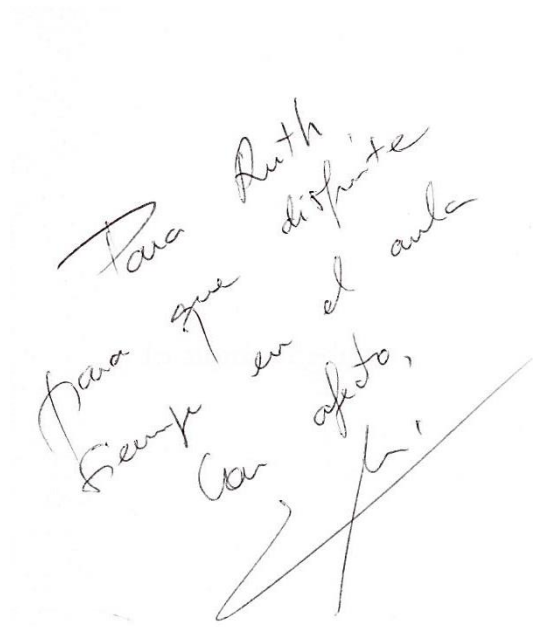 Para Ruth
para que disfrute
siempre en el aula
Con afecto,